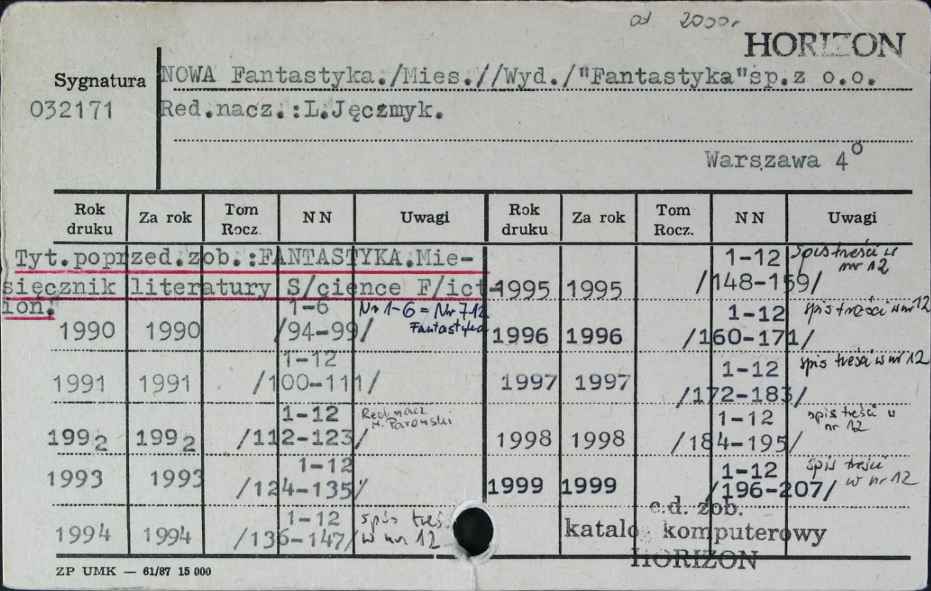 od 2000r
HORIZON
Sygnatura
032171
NOWA Fantastyka./Mies.//Wyd./"Fantastyka"sp.z o.o.
Red.nacz.:L.Jęczmyk.
Warszawa 4°
Rok druku Za rok Tom Rocz. NN Uwagi Rok druku Za rok Tom Rocz. NN Uwagi
Tyt.poprzed.zob.:FANTASTYKA.Mie-
sięcznik literatury S/cience F/ict-
ion."
1990 1990 1-6 /94-99/ Nr 1-6 = Nr 7-12 Fantastyka
1991 1991 1-12 /100-111/
1992 1992 1-12 /112-123/ Red. nacz. M. Parowski
1993 1993 1-12 /124-135/
1994 1994 1-12 /136-147/ spis treś. w nr 12
1995 1995 1-12 /148-159/ Spis treści w nr 12
1996 1996 1-12 /160-171/ spis treści w nr 12
1997 1997 1-12 /172-183/ spis treści w nr 12
1998 1998 1-12 /184-195/ spis treści w nr 12
1999 1999 1-12 /196-207/ spis treści w nr 12
c.d. zob.
katalo komputerowy
HORIZON
ZP UMK — 61/87 15 000